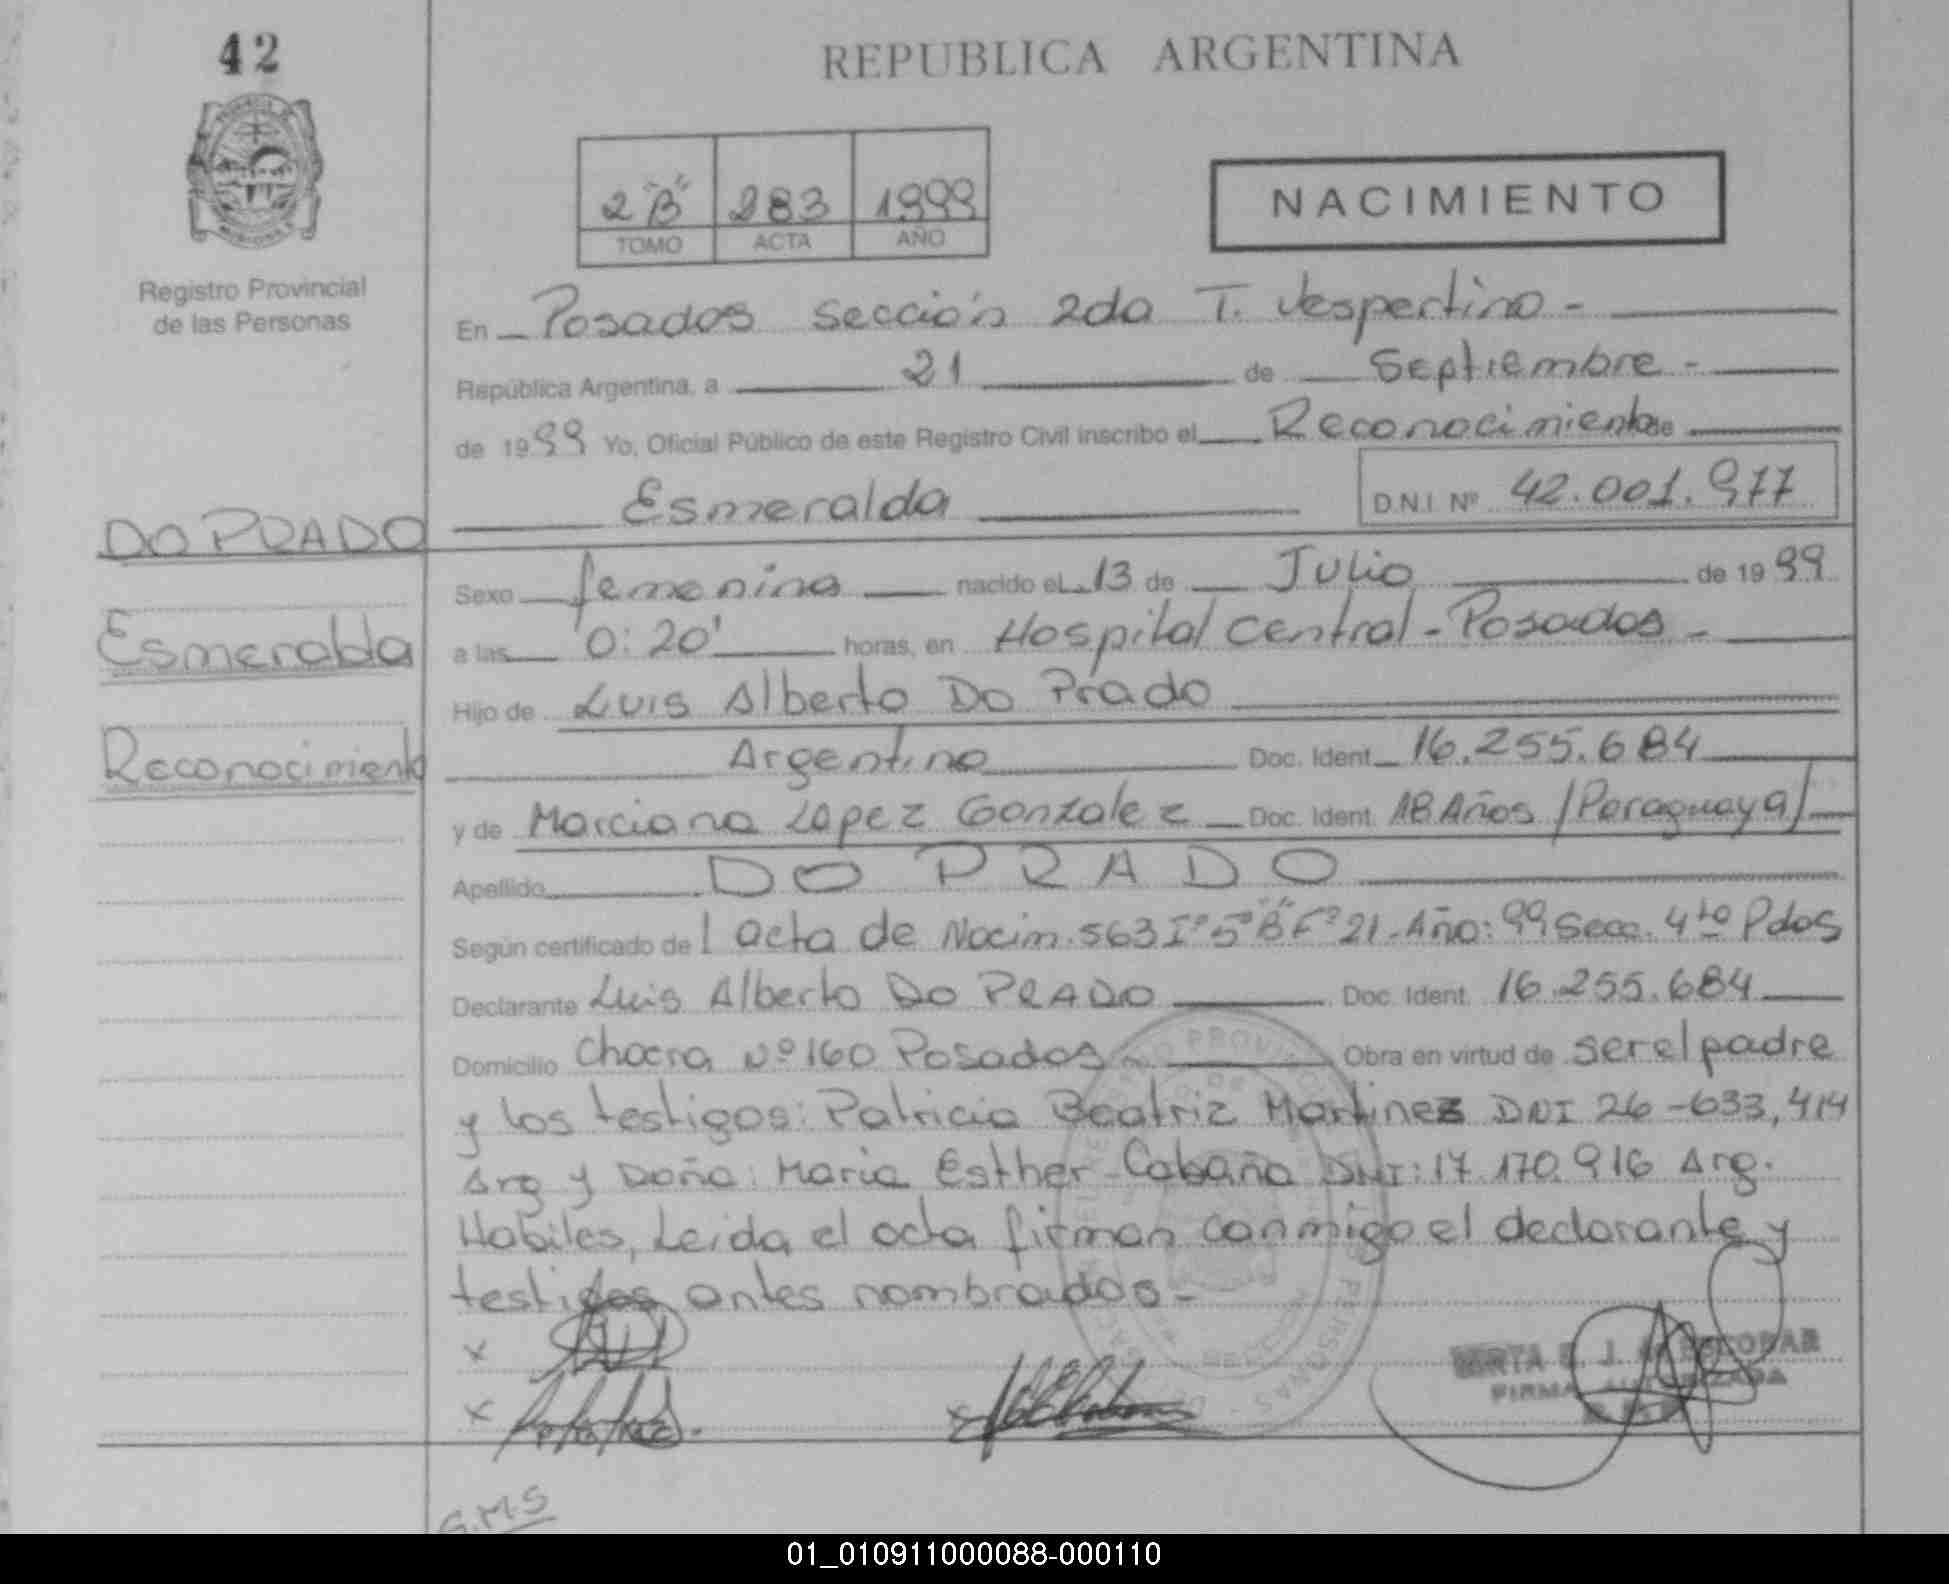 42
REPUBLICA ARGENTINA
2 "B" 283 1999
TOMO ACTA AÑO
NACIMIENTO
Registro Provincial
de las Personas
En Posadas sección 2da T. Vespertino -
República Argentina, a 21 de Septiembre -
de 1999 Yo, Oficial Público de este Registro Civil inscribo el Reconocimiento de
Esmeralda D.N.I. Nº 42.001.977
DO PRADO
Esmeralda
Reconocimiento
Sexo femenina nacido el 13 de Julio de 1999
a las 0:20' horas, en Hospital Central - Posadas -
Hijo de Luis Alberto Do Prado
Argentino Doc. Ident. 16.255.684
y de Marciana Lopez Gonzalez Doc. Ident. 18 Años /Paraguaya/
Apellido DO PRADO
Según certificado de l acta de Nacim. 563 Tº 5º "B" Fº 21 - Año: 99 Secc. 4to Pdas
Declarante Luis Alberto Do PRADO Doc. Ident. 16.255.684
Domicilio Chacra Nº 160 Posadas Obra en virtud de ser el padre
y los testigos: Patricia Beatriz Martinez DNI 26-633,414
Arg y Doña: Maria Esther Cabaña DNI: 17.170.916 Arg.
Habiles, Leida el acta firman conmigo el declarante y
testigos antes nombrados -
x
x x
J. ESCOBAR
FIRMA AUTORIZADA
G.M.S
01_010911000088-000110